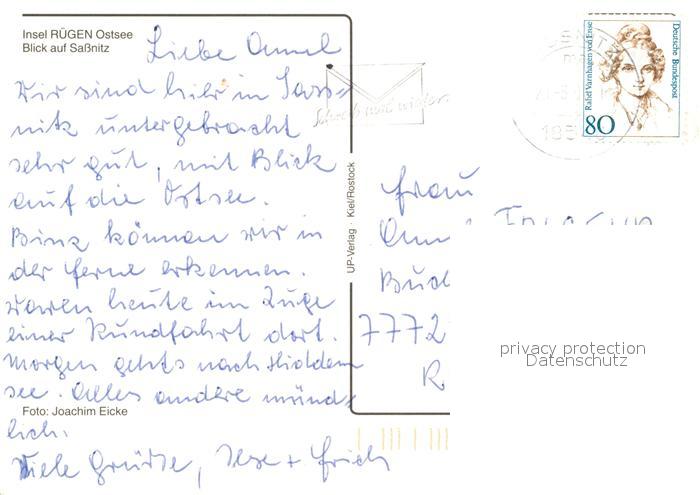 Insel RÜGEN Ostsee
Blick auf Saßnitz
Liebe Annel
Wir sind hier in Sass-
nitz untergebracht
sehr gut, mit Blick
auf die Ostsee.
Binz können wir in
der Ferne erkennen.
Waren heute im Zuge
einer Rundfahrt dort.
Morgen gehts nach Hidden
see. Alles andere münd-
lich.
Viele Grüsse, Ilse + Erich
Foto: Joachim Eicke
UP-Verlag · Kiel/Rostock
Schreib mal wieder
Deutsche Bundespost
Rahel Varnhagen von Ense
80
Frau
7772
privacy protection
Datenschutz